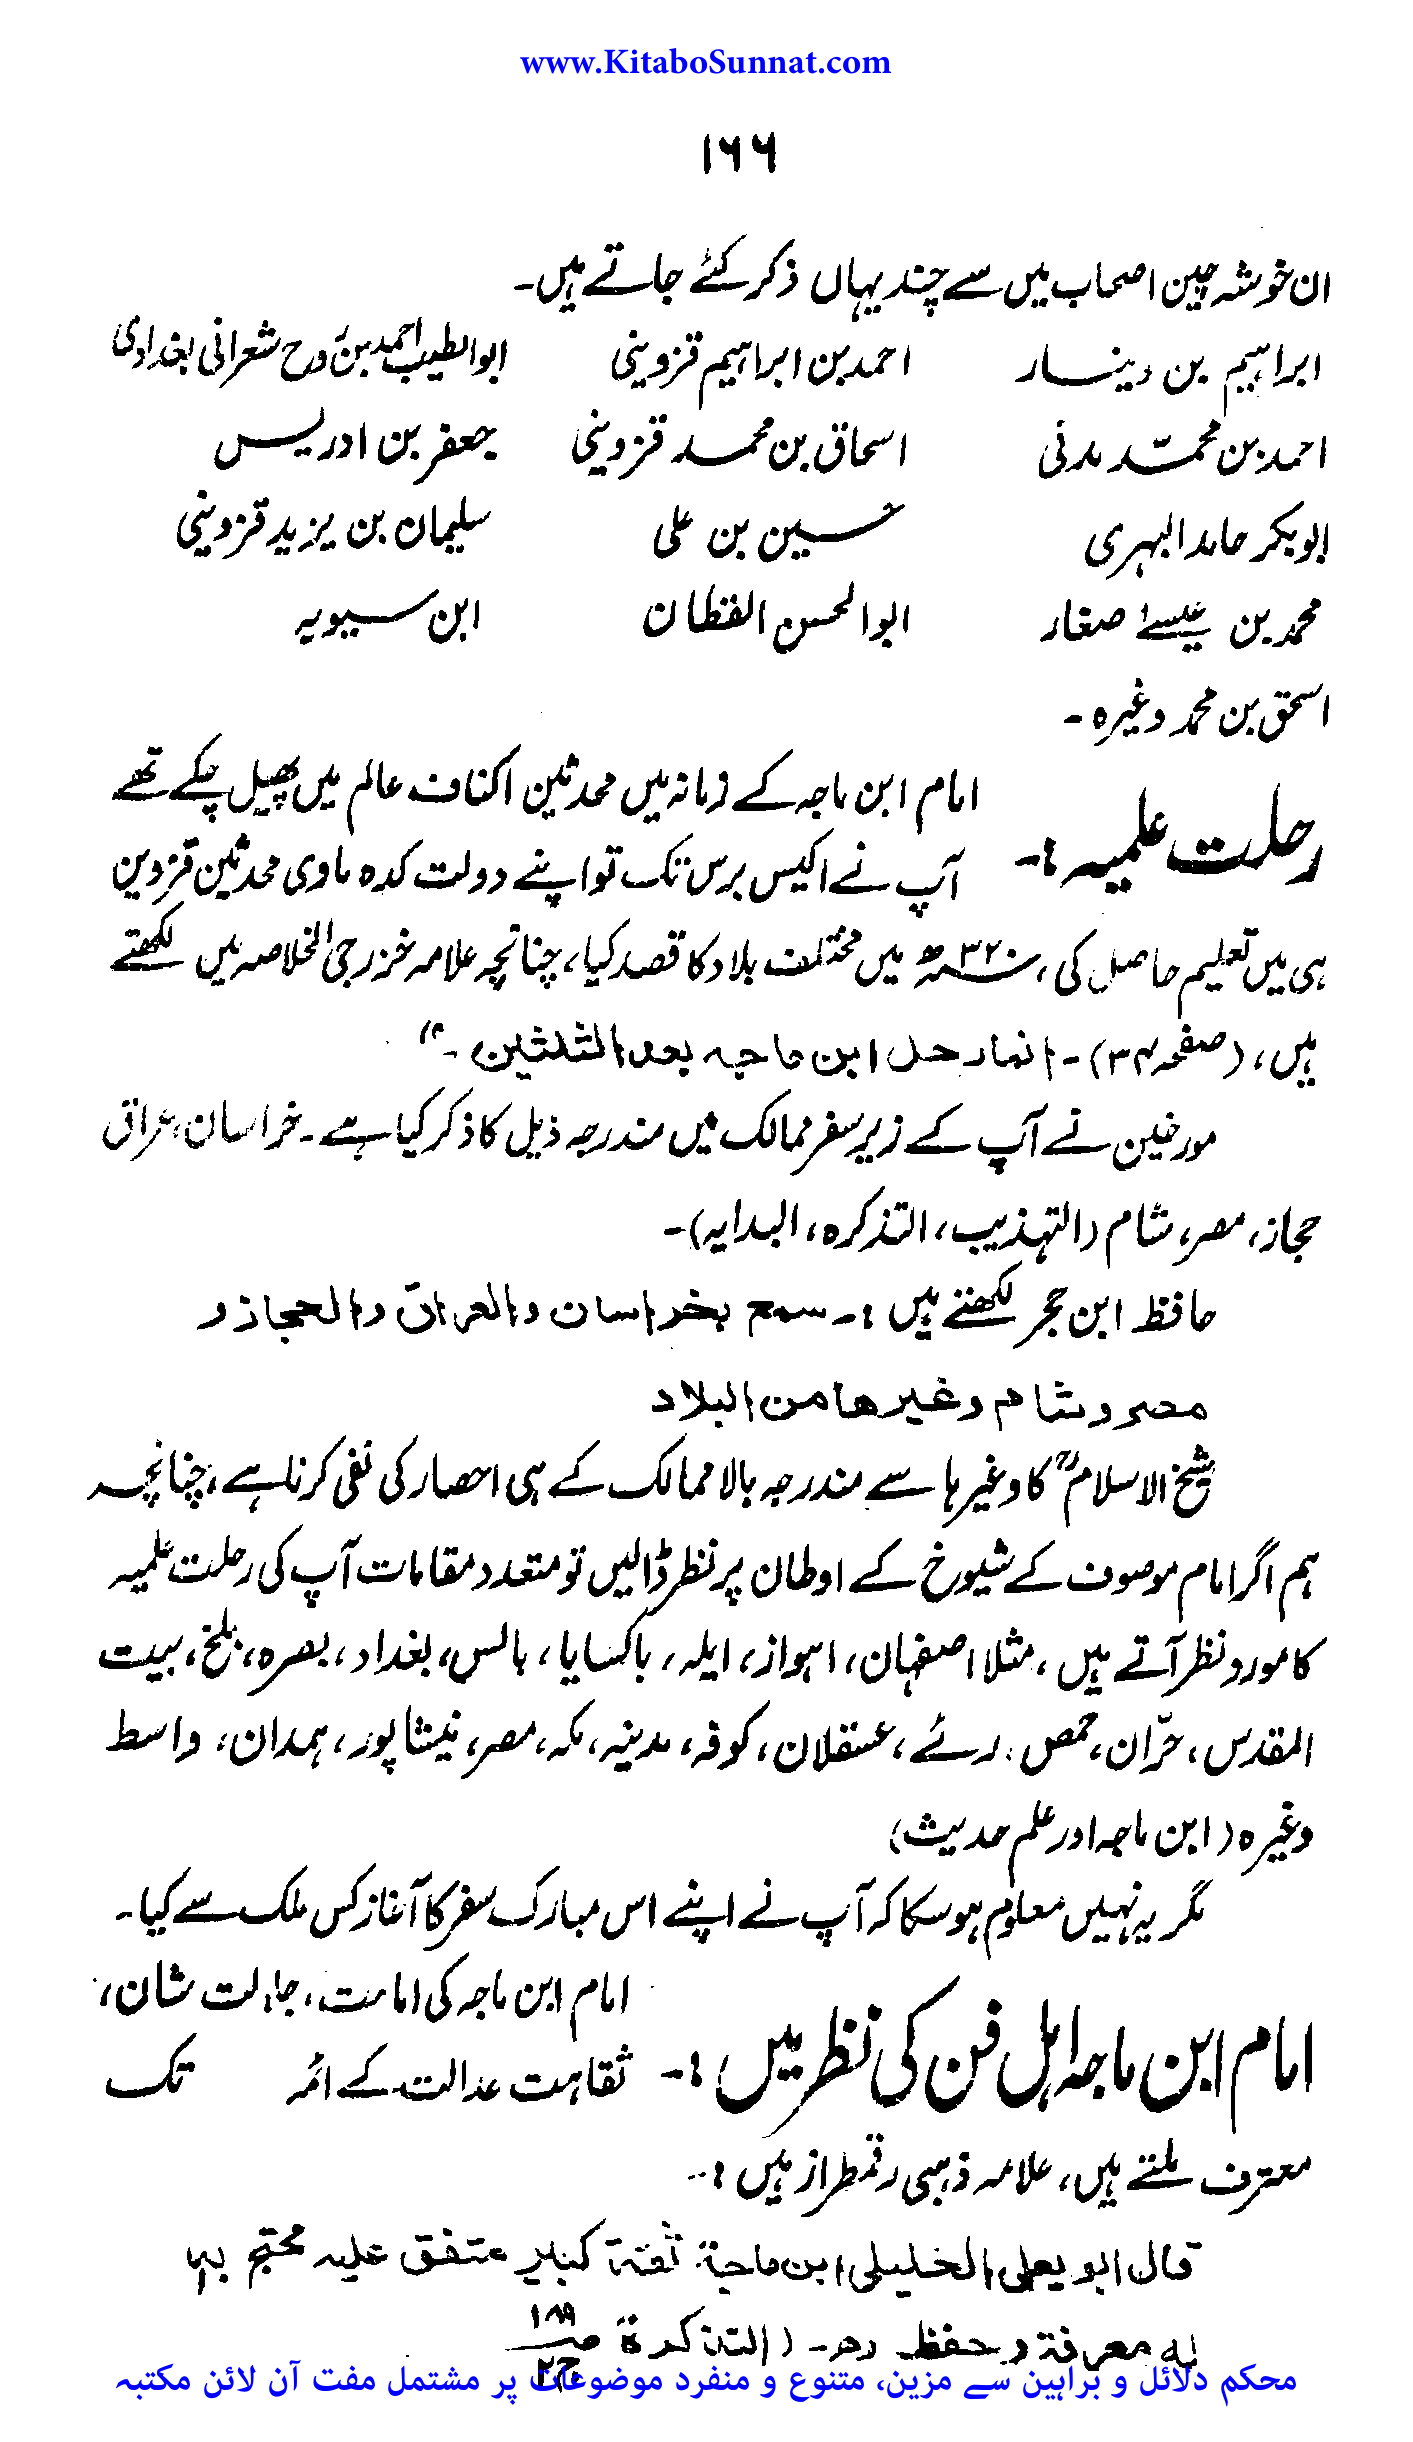 www.KitaboSunnat.com
۱۶۶
ان خوشہ چین اصحاب میں سے چند یہاں ذکر کئے جاتے ہیں۔
ابراہیم بن دینار احمد بن ابراہیم قزوینی ابوالطیب احمد بن روح شعرانی بغدادی
احمد بن محمّد مدنی اسحاق بن محمد قزوینی جعفر بن ادریس
ابوبکر حامد البہری حسین بن علی سلیمان بن یزید قزوینی
محمد بن عیسےٰ صفار ابوالحسن القطان ابن سیبویہ
اسحٰق بن محمد وغیرہ۔
رحلت علمیہ :۔ امام ابن ماجہ کے زمانہ میں محدثین اکناف عالم میں پھیل چکے تھے
آپ نے اکیس برس تک تو اپنے دولت کدہ ماوی محدثین قزوین
ہی میں تعلیم حاصل کی، ۳۲۰ھ میں مختلف بلاد کا قصد کیا، چنانچہ علامہ خزرجی الخلاصہ میں لکھتے
ہیں، (صفحہ ۳۴)۔ انما رحل ابن ماجہ بعد الثلثین۔"
مورخین نے آپ کے زیر سفر ممالک میں مندرجہ ذیل کا ذکر کیا ہے۔ خراسان، عراق
حجاز، مصر، شام (التہذیب، التذکرہ، البدایہ)۔
حافظ ابن حجر لکھتے ہیں :۔ سمع بخراسان والعراق والحجاز و
مصر وشام وغیرها من البلاد
شیخ الاسلامؒ کا وغیرہا سے مندرجہ بالا ممالک کے ہی احصار کی نفی کرنا ہے، چنانچہ
ہم اگر امام موصوف کے شیوخ کے اوطان پر نظر ڈالیں تو متعدد مقامات آپ کی رحلت علمیہ
کا مورد نظر آتے ہیں، مثلا اصفہان، اہواز، ایلہ، باکسایا، بالس، بغداد، بصرہ، بلخ، بیت
المقدس، حرّان، حمص، رئے، عسقلان، کوفہ، مدینہ، مکہ، مصر، نیشاپور، ہمدان، واسط
وغیرہ (ابن ماجہ اور علم حدیث)
مگر یہ نہیں معلوم ہو سکا کہ آپ نے اپنے اس مبارک سفر کا آغاز کس ملک سے کیا۔
امام ابن ماجہ اہل فن کی نظر میں :۔ امام ابن ماجہ کی امامت، جلالت شان،
ثقاہت عدالت کے ائمہ تک
معترف ملتے ہیں، علامہ ذہبی رقمطراز ہیں :۔
قال ابو یعلی الخلیلی ابن ماجة ثقة کبیر متفق علیہ محتج بہ
له معرفة وحفظ رھ۔ (التذکرة ص ۱۸۹ ج۲
محکم دلائل و براہین سے مزین، متنوع و منفرد موضوعات پر مشتمل مفت آن لائن مکتبہ